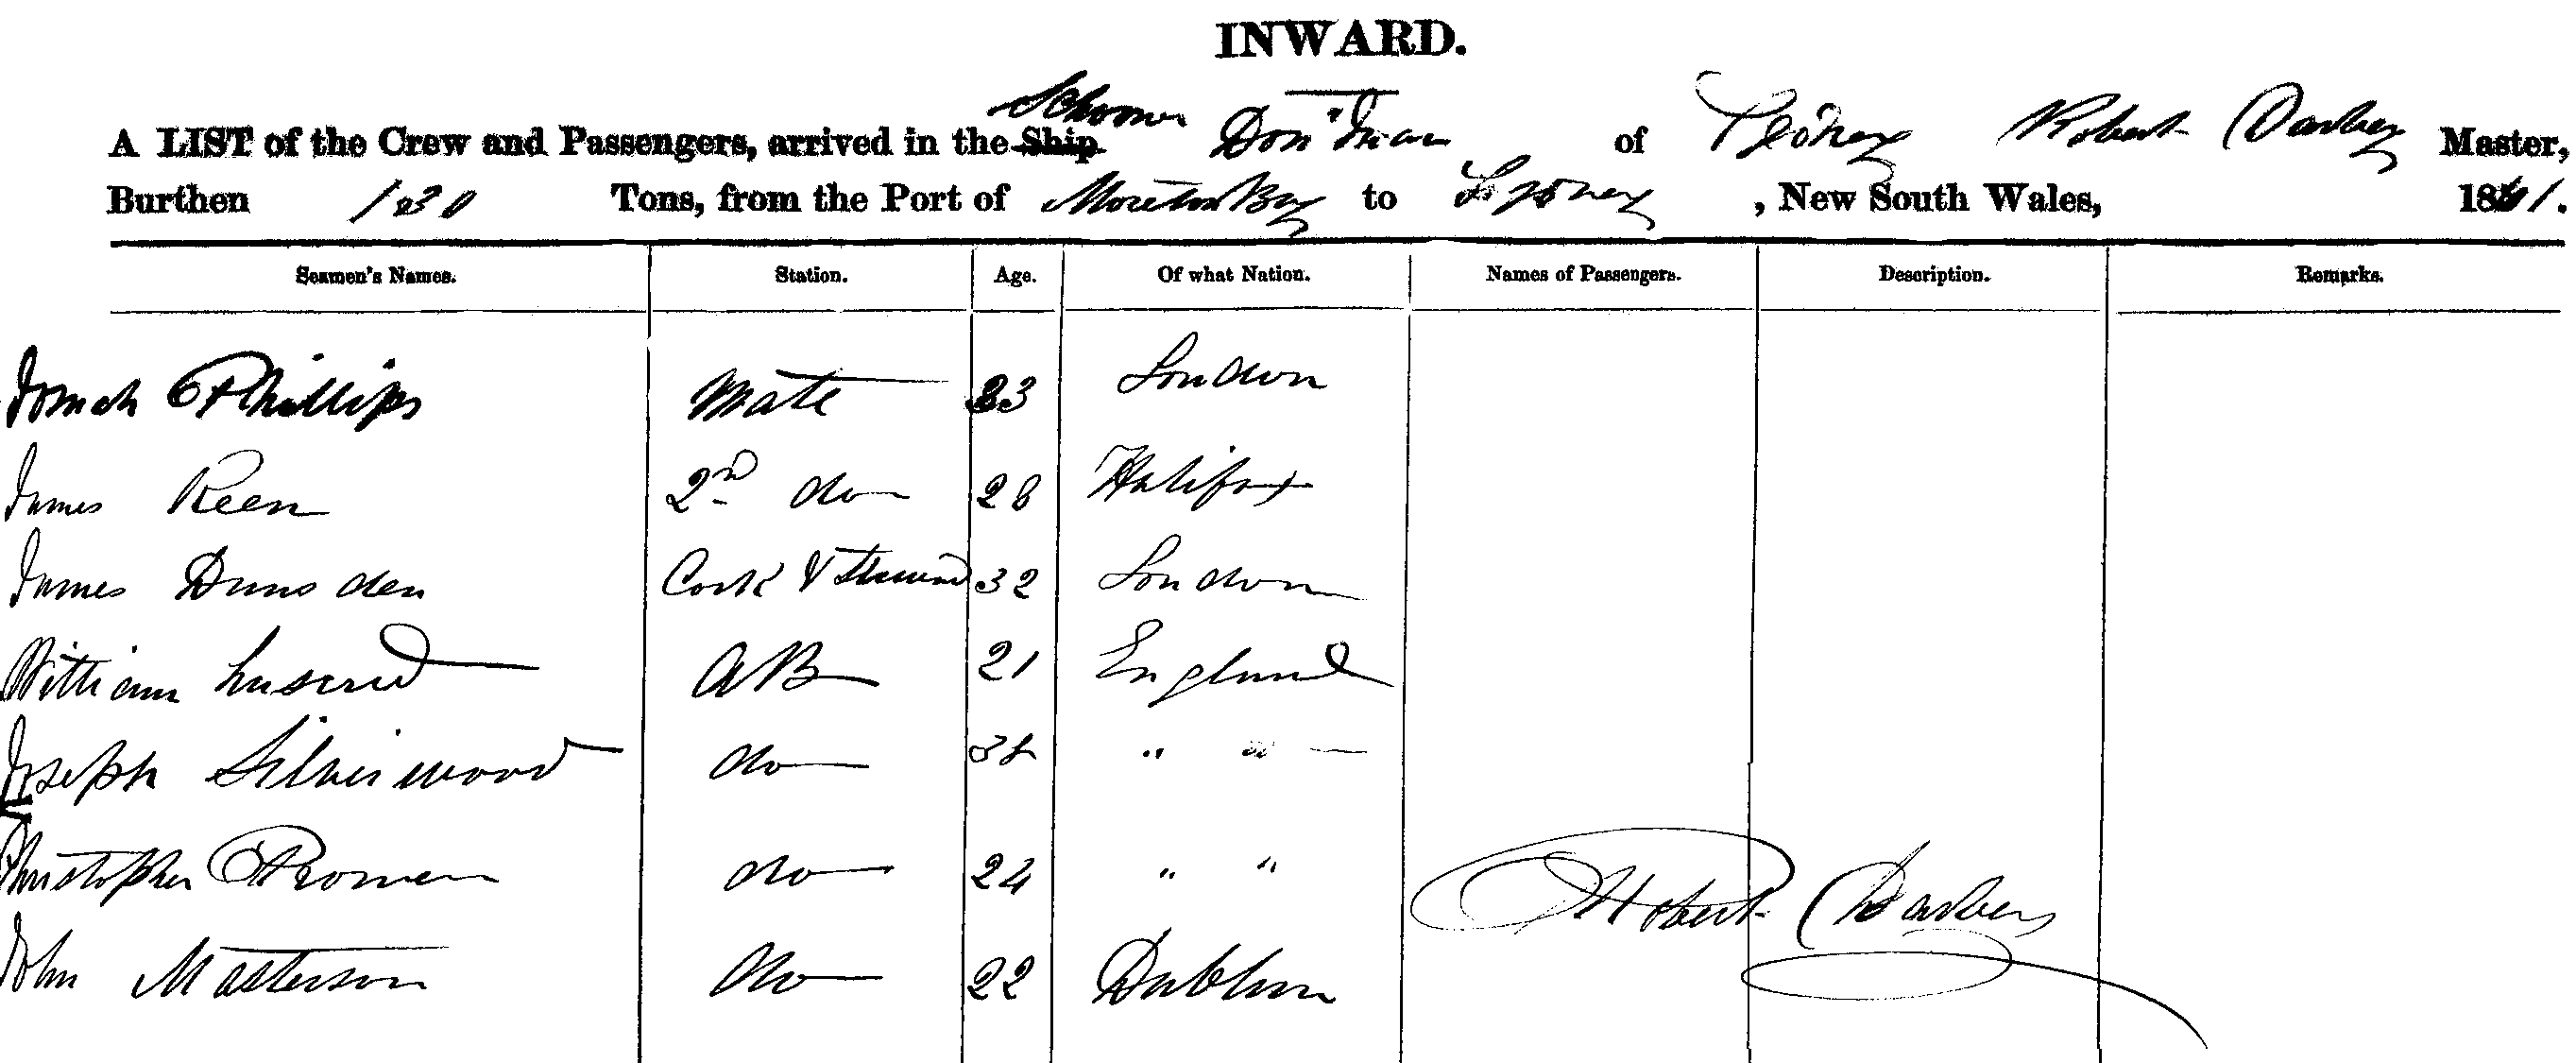 INWARD.
A LIST of the Crew and Passengers, arrived in the Ship Schooner Don Juan of Sydney Robert Darbey Master,
Burthen 130 Tons, from the Port of Moreton Bay to Sydney, New South Wales, 1861.
Seamen's Names. Station. Age. Of what Nation. Names of Passengers. Description. Remarks.
Phillips Mate 23 London
James Keen 2nd do 28 Halifax
James Dunsden Cook & Steward 32 London
William AB 21 England
Joseph Silverwood do " "
Christopher do 24 " "
Robert Darbey
John Masterson do 22 Dublin